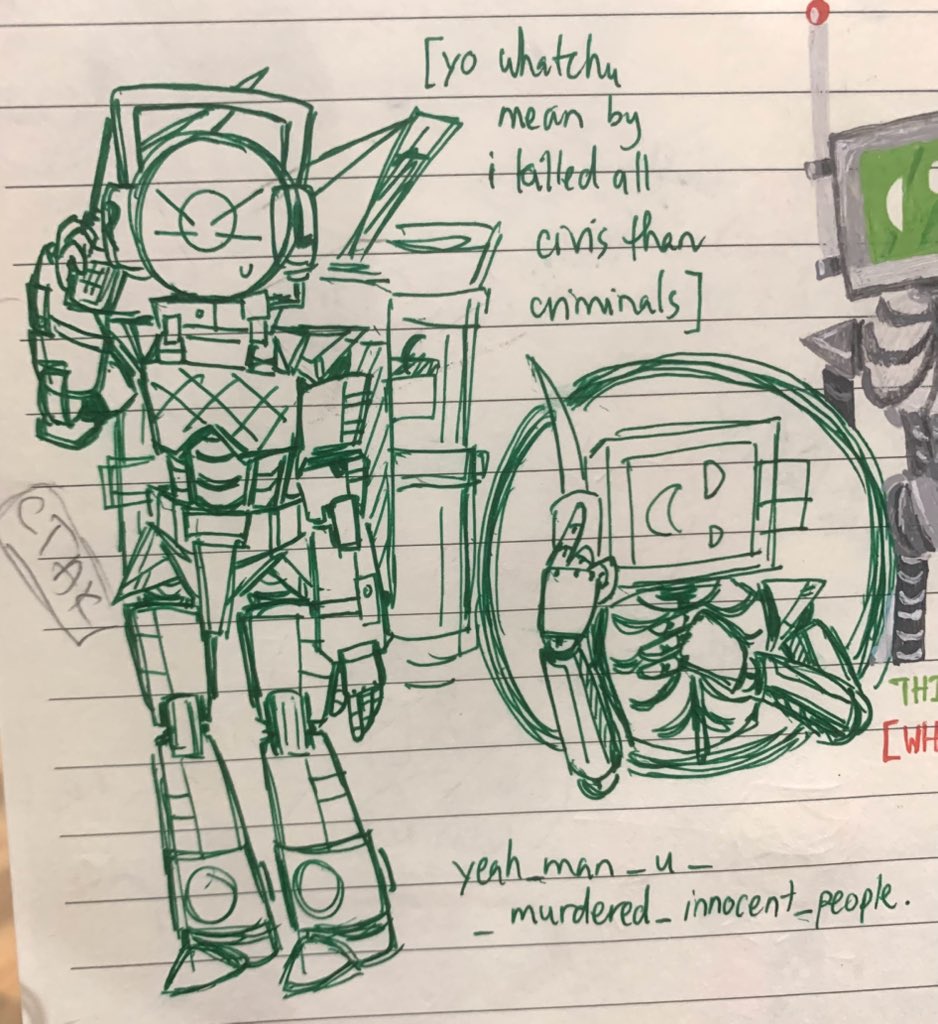 [yo whatchu
mean by
i killed all
civis than
criminals]
CTAX
THI
[WH
yeah_man_u_
_murdered_innocent_people.